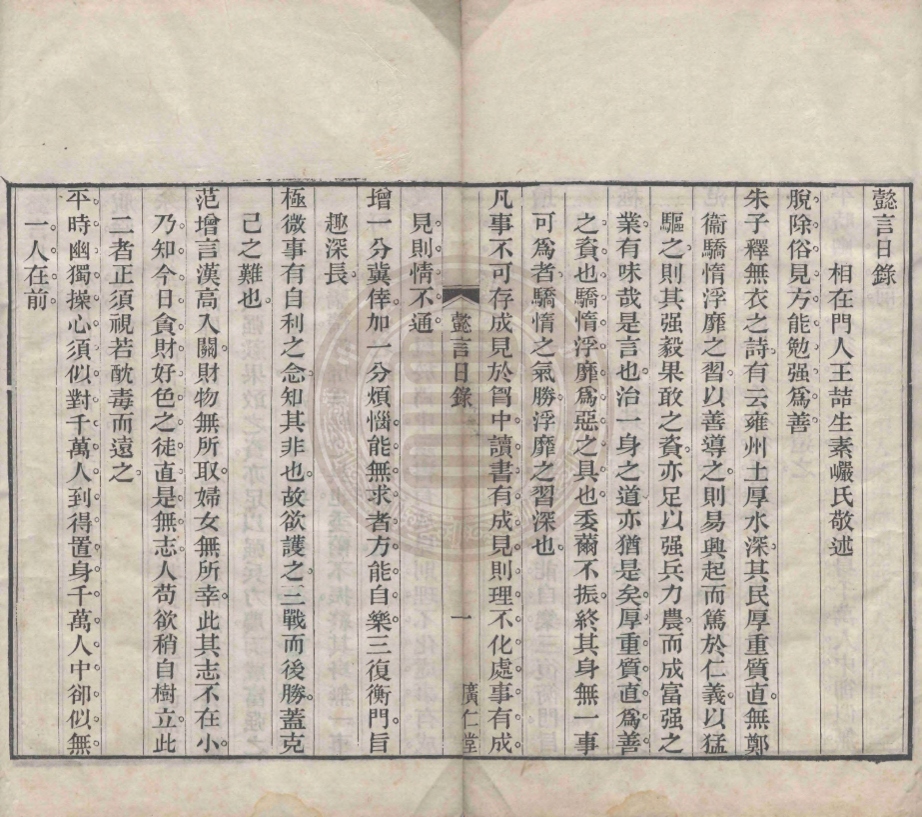 懿言日錄
相在門人王喆生素巖氏敬述
脫除俗見方能勉强爲善
朱子釋無衣之詩有云雍州土厚水深其民厚重質直無鄭
衞驕惰浮靡之習以善導之則易興起而篤於仁義以猛
驅之則其强毅果敢之資亦足以强兵力農而成富强之
業有味哉是言也治一身之道亦猶是矣厚重質直爲善
之資也驕惰浮靡爲惡之具也委薾不振終其身無一事
可爲者驕惰之氣勝浮靡之習深也
凡事不可存成見於胷中讀書有成見則理不化處事有成
懿言日錄
一
廣仁堂
見則情不通
增一分冀倖加一分煩惱能無求者方能自樂三復衡門旨
趣深長
極微事有自利之念知其非也故欲護之三戰而後勝蓋克
己之難也
范增言漢高入關財物無所取婦女無所幸此其志不在小
乃知今日貪財好色之徒直是無志人苟欲稍自樹立此
二者正須視若酖毒而遠之
平時幽獨操心須似對千萬人到得置身千萬人中卻似無
一人在前